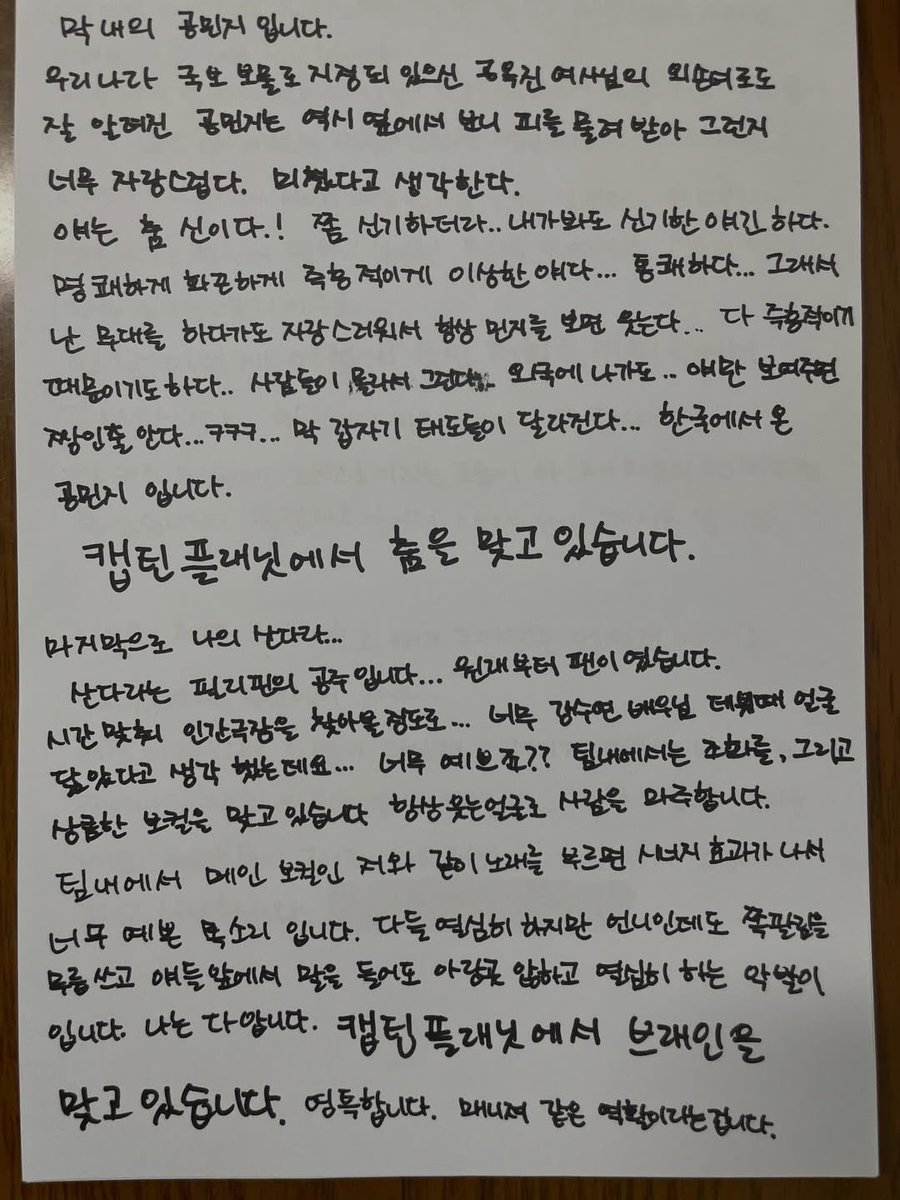 막내의 공민지 입니다.
우리나라 국보 보물로 지정되 있으신 공옥진 여사님의 외손녀로도
잘 알려진 공민지는 역시 옆에서 보니 피를 물려 받아 그런지
너무 자랑스럽다. 미쳤다고 생각한다.
얘는 춤 신이다.! 쫌 신기하더라.. 내가봐도 신기한 얘긴 하다.
명쾌하게 화끈하게 즉흥적이게 이상한 얘다... 통쾌하다... 그래서
난 무대를 하다가도 자랑스러워서 항상 민지를 보면 웃는다... 다 즉흥적이기
때문이기도하다.. 사람들이 몰라서 그런다.. 외국에 나가도.. 얘만 보여주면
짱인줄 안다...ㅋㅋㅋ... 막 갑자기 태도들이 달라진다... 한국에서 온
공민지 입니다.
캡틴플래닛에서 춤을 맞고 있습니다.
마지막으로 나의 산다라...
산다라는 필리핀의 공주입니다... 원래부터 팬이였습니다.
시간맞춰 인간극장을 찾아볼정도로... 너무 강수연 배우님 데뷔때 얼굴
닮았다고 생각 했는데요... 너무 예쁘죠?? 팀내에서는 조화를, 그리고
상큼한 보컬을 맞고있습니다 항상웃는얼굴로 사람을 마주합니다.
팀내에서 메인 보컬인 저와 같이노래를 부르면 시너지 효과가 나서
너무 예쁜 목소리 입니다. 다들열심히 하지만 언니인데도 쪽팔림을
무릅쓰고 얘들앞에서 말을 들어도 아랑곳 않하고 열심히 하는 악발이
입니다. 나는 다압니다. 캡틴플래닛에서 브래인을
맞고있습니다. 영특합니다. 매니져 같은 역활이라는겁니다.